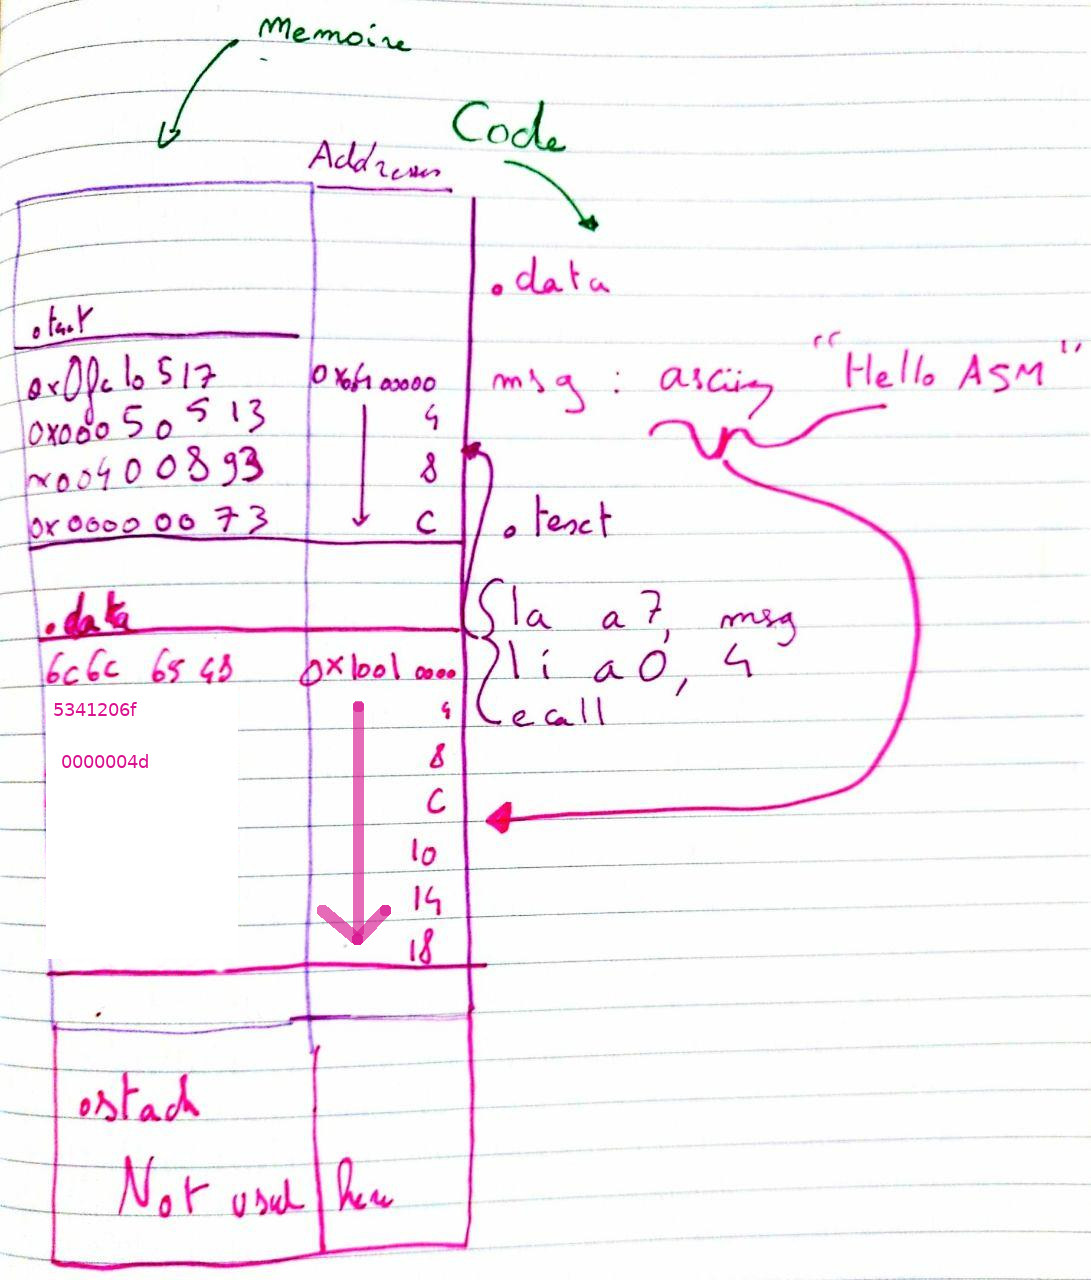 Memoire
Code
Addresses
.data
.text
0x0fc10517 0x00400000
msg : asciiz "Hello ASM"
0x00050513 4
x00400893 8
0x00000073 C
.text
.data
la a7, msg
6c6c 6548 0x1001 0000
li a0, 4
5341206f 4
ecall
0000004d 8
C
10
14
18
.stack
Not used here